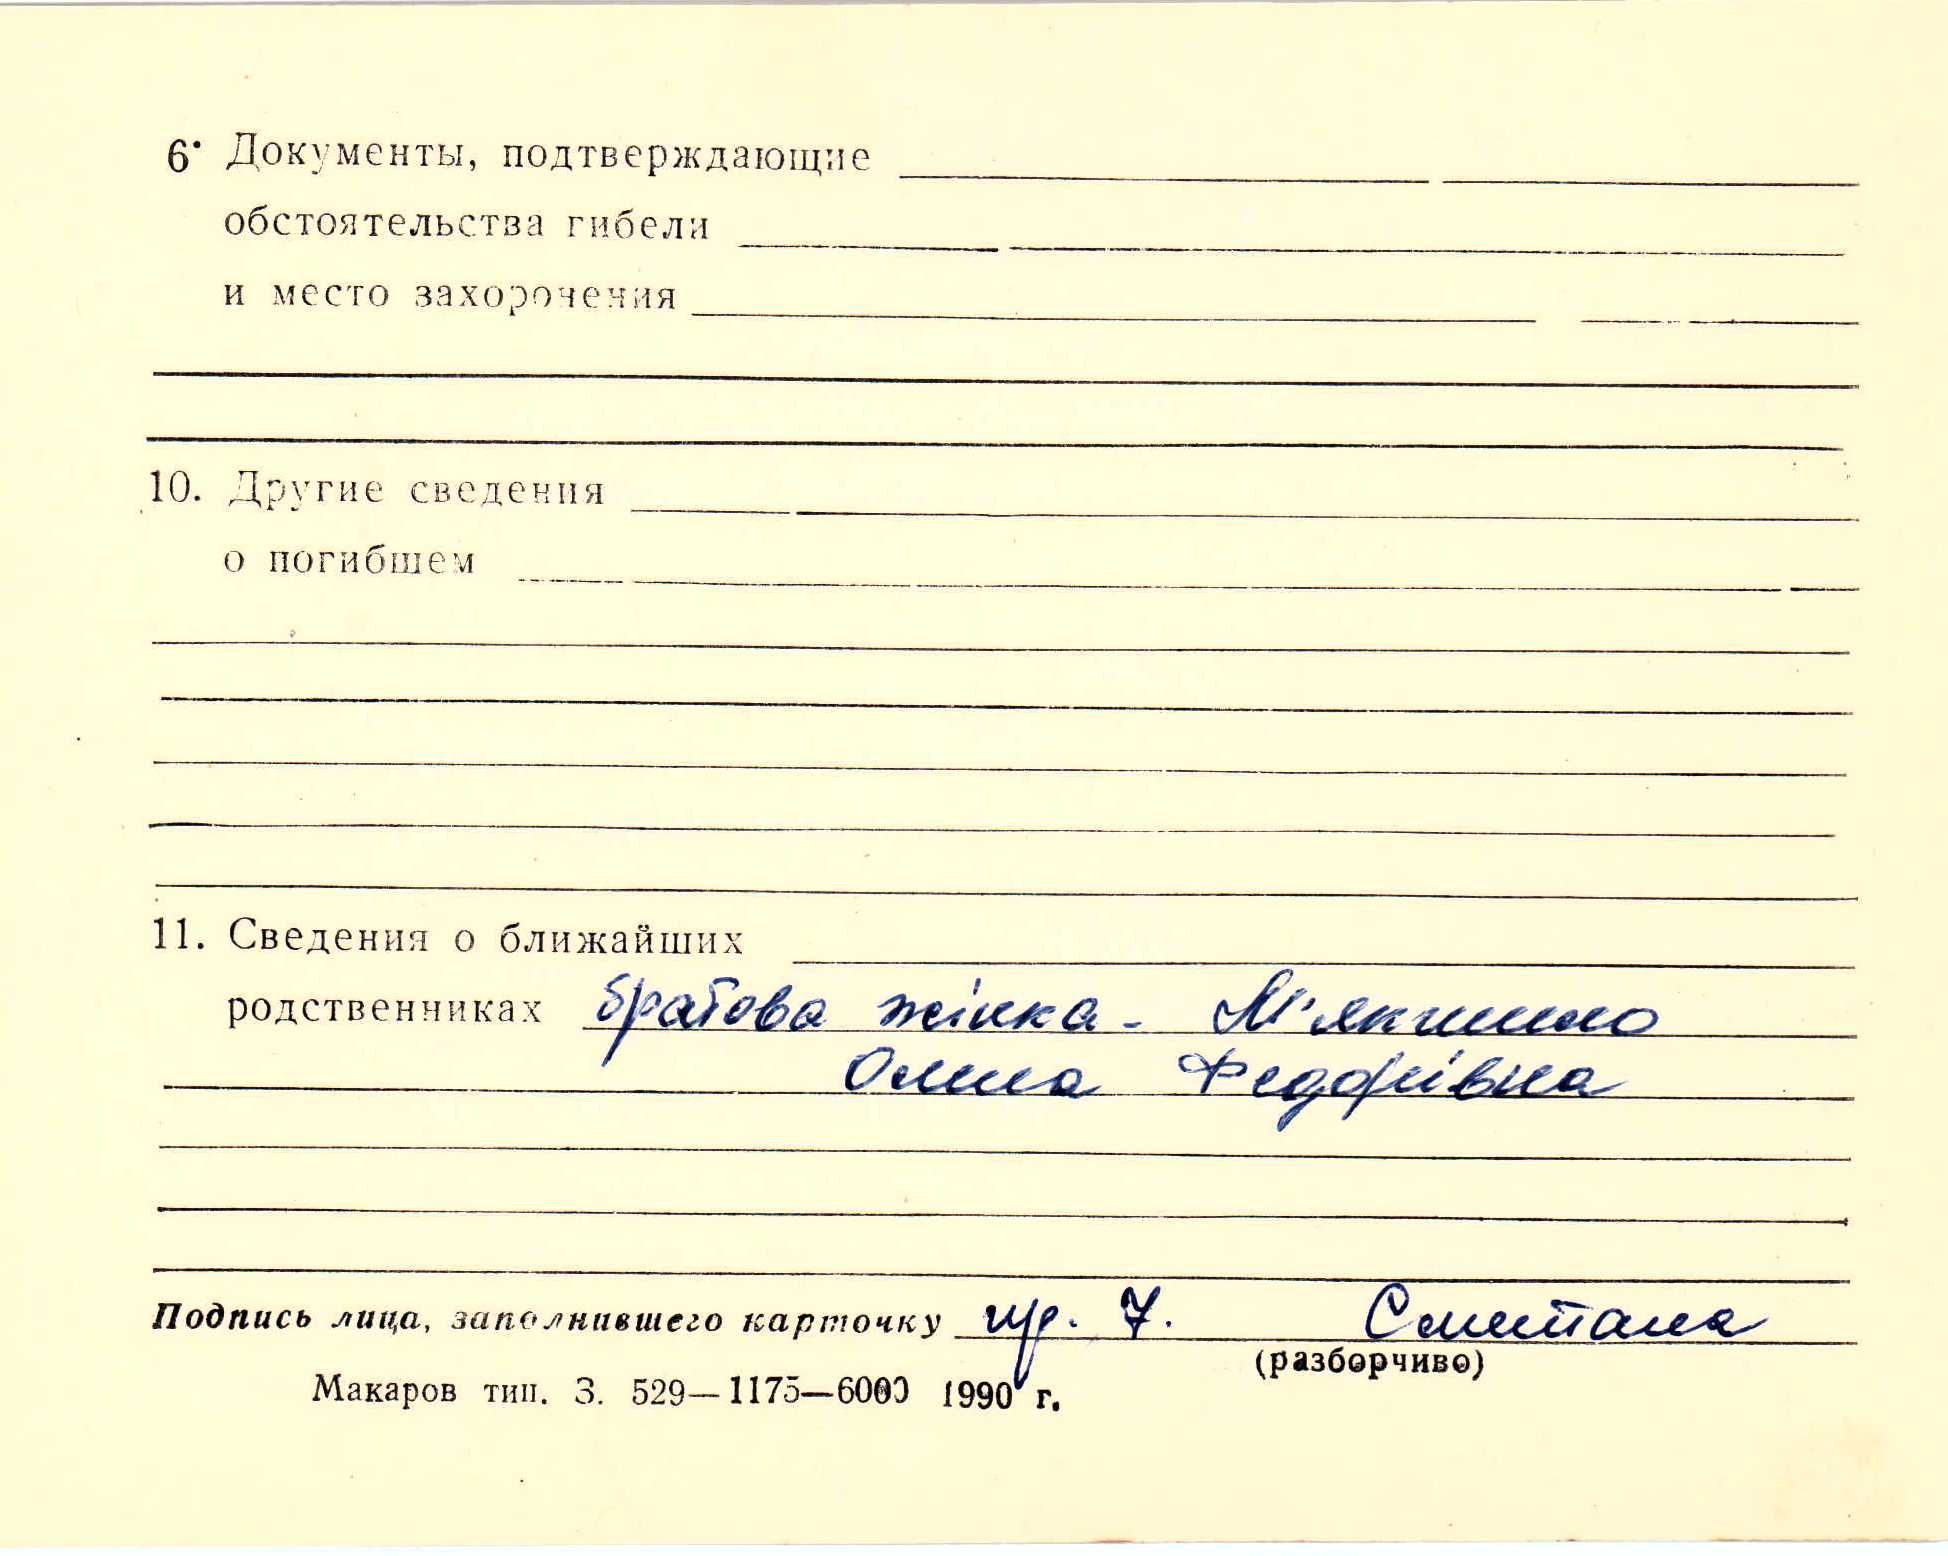 6. Документы, подтверждающие
обстоятельства гибели
и место захоронения
10. Другие сведения
о погибшем
11. Сведения о ближайших
родственниках братова жінка - М'якшило
Олина Федорівна
Подпись лица, заполнившего карточку гр. 7. Сметана
(разборчиво)
Макаров тип. З. 529—1175—6000 1990 г.